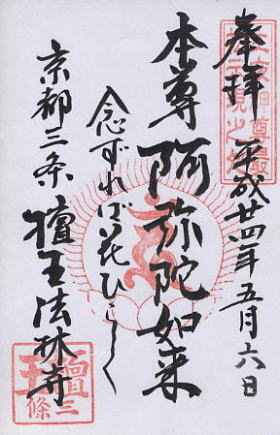 奉拝 平成廿四年五月六日
本尊 阿弥陀如来
念ずれば花ひらく
京都三条 檀王法林寺
檀王
三條